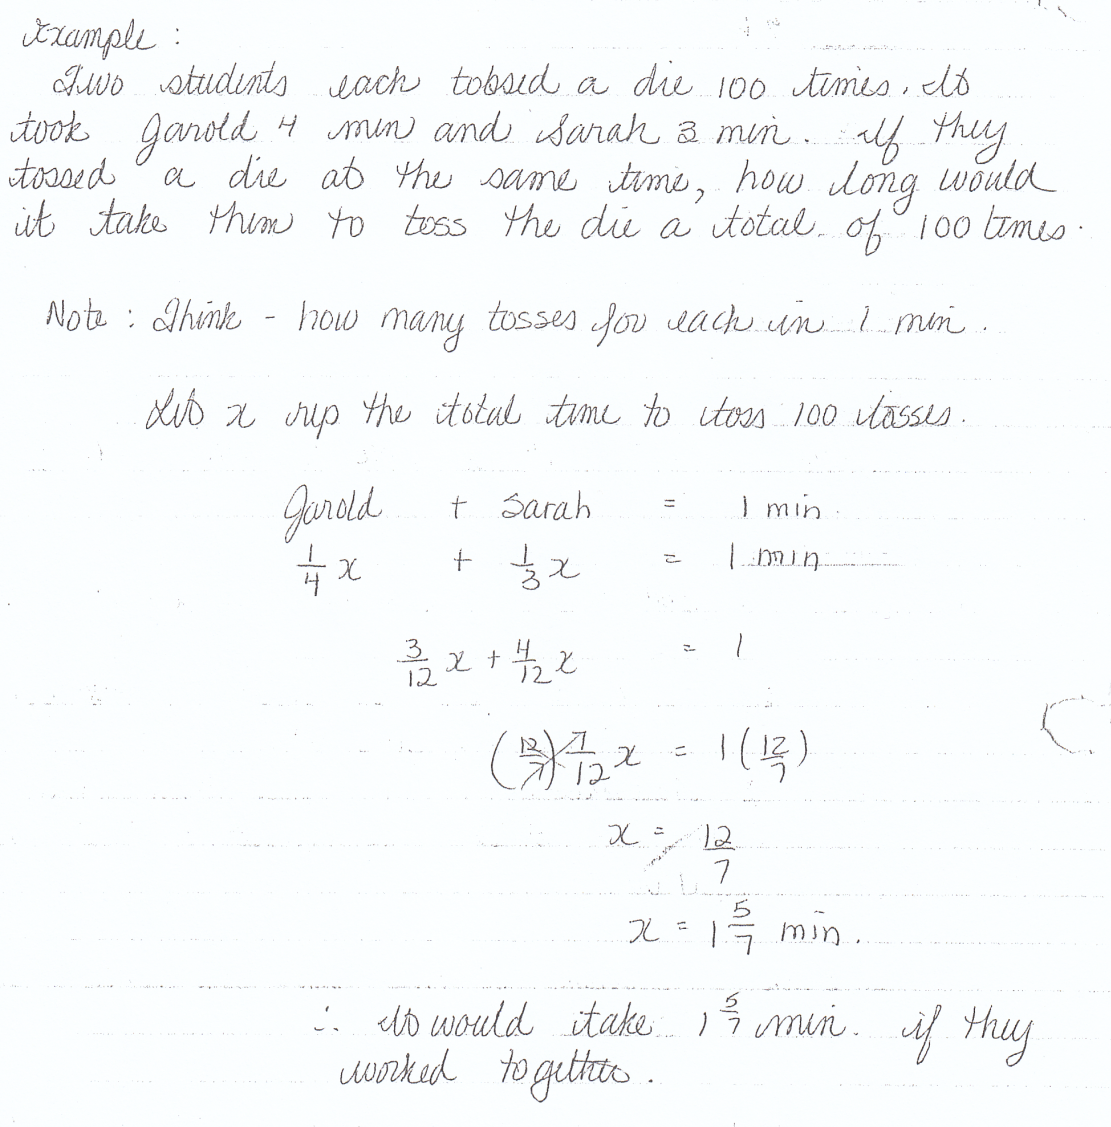 Example :
Two students each tossed a die 100 times. It
took Jarold 4 min and Sarah 3 min. If they
tossed a die at the same time, how long would
it take them to toss the die a total of 100 times.
Note : Think - how many tosses for each in 1 min.
Let x rep the total time to toss 100 tosses.
Jarold + Sarah = 1 min
1/4 x + 1/3 x = 1 min
3/12 x + 4/12 x = 1
(12/7) 7/12 x = 1 (12/7)
x = 12/7
x = 1 5/7 min.
∴ It would take 1 5/7 min. if they
worked together.